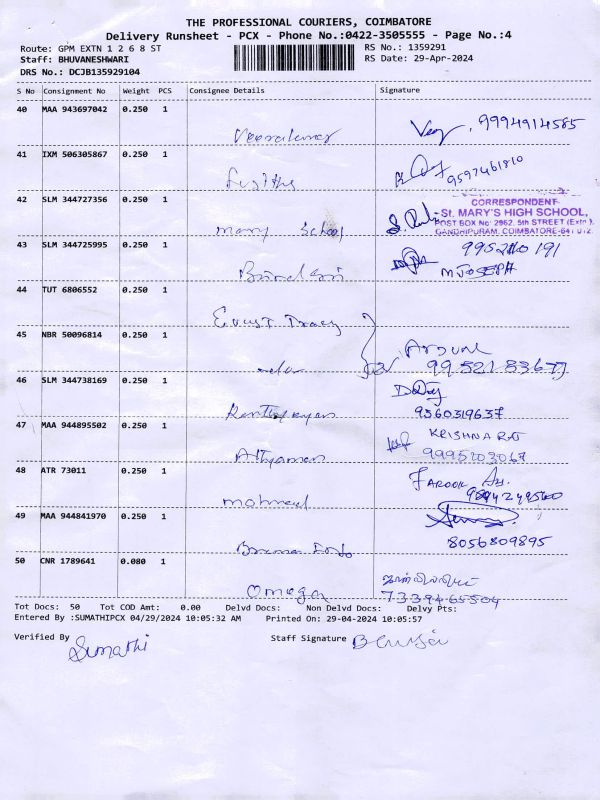 THE PROFESSIONAL COURIERS, COIMBATORE
Delivery Runsheet - PCX - Phone No.:0422-3505555 - Page No.:4
Route: GPM EXTN 1 2 6 8 ST RS No.: 1359291
Staff: BHUVANESHWARI RS Date: 29-Apr-2024
DRS No.: DCJB135929104
S No Consignment No Weight PCS Consignee Details Signature
40 MAA 943697042 0.250 1
9994914585
41 IXM 506305867 0.250 1
9597461810
42 SLM 344727356 0.250 1
CORRESPONDENT
St. MARY'S HIGH SCHOOL,
POST BOX No: 2962, 5th STREET (Extn.),
GANDHIPURAM, COIMBATORE-641 012.
mary School
43 SLM 344725995 0.250 1
M JOSEPH
44 TUT 6806552 0.250 1
45 NBR 50096814 0.250 1
46 SLM 344738169 0.250 1
9360319637
47 MAA 944895502 0.250 1 KRISHNA RAJ
9995203067
48 ATR 73011 0.250 1 FAROOK
49 MAA 944841970 0.250 1
8056809895
50 CNR 1789641 0.080 1
Omega 7339465504
Tot Docs: 50 Tot COD Amt: 0.00 Delvd Docs: Non Delvd Docs: Delvy Pts:
Entered By :SUMATHIPCX 04/29/2024 10:05:32 AM Printed On: 29-04-2024 10:05:57
Verified By Sumathi Staff Signature